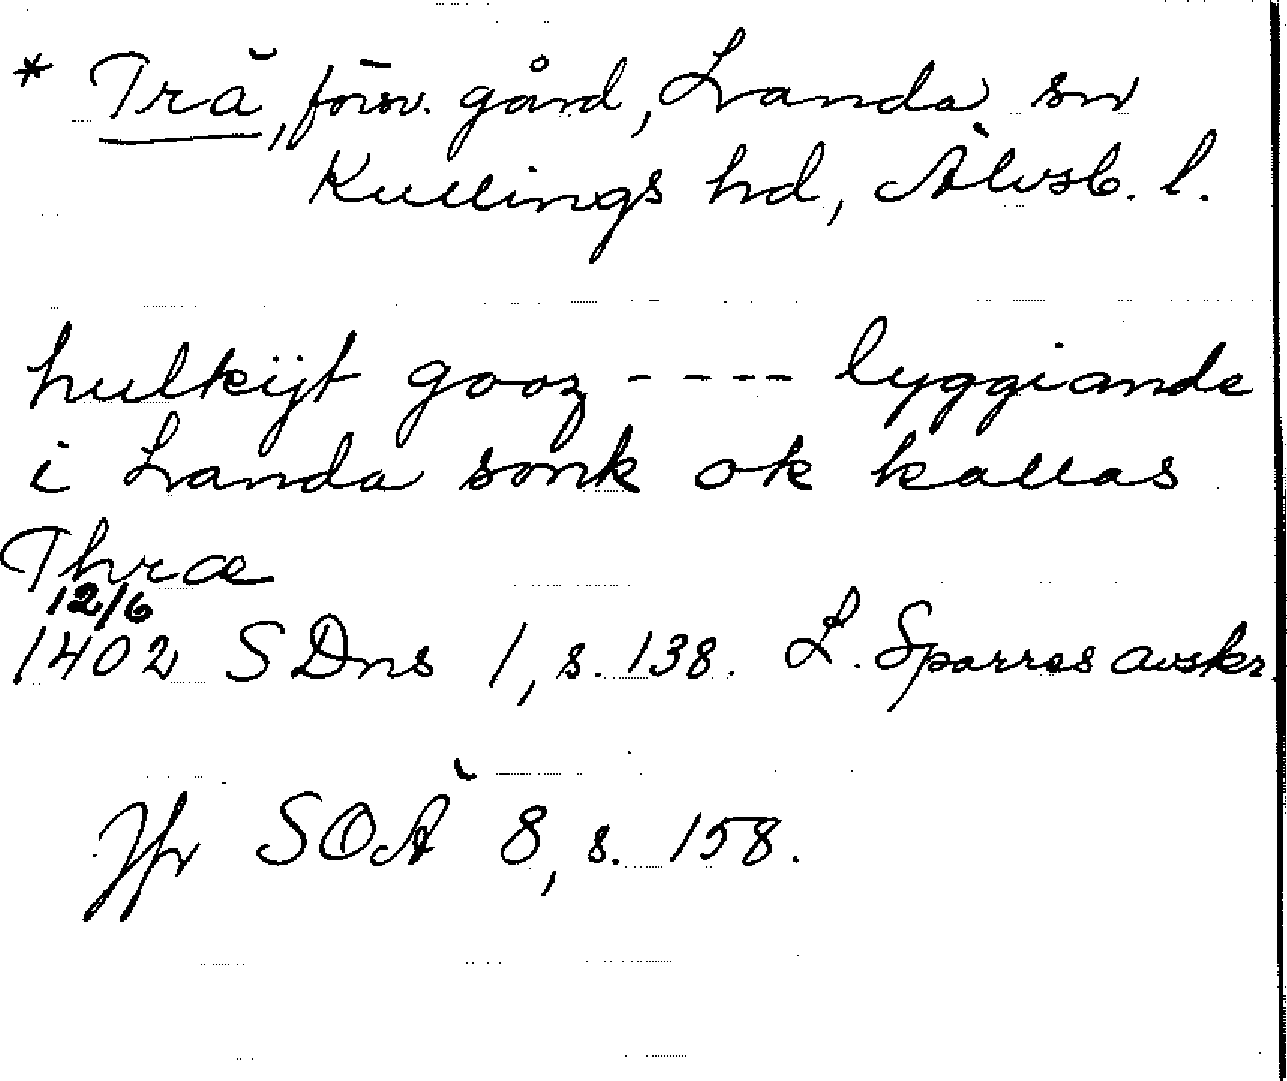 * Trä, försv. gård, Landa sn
Kullings hd, Älvsb. l.
hulkijt gooz ---- lyggiande
i Landa sonk ok kallas
Thræ
12/6
1402 SDns 1, s. 138. L. Sparres avskr.
Jfr SOÄ 8, s. 158.